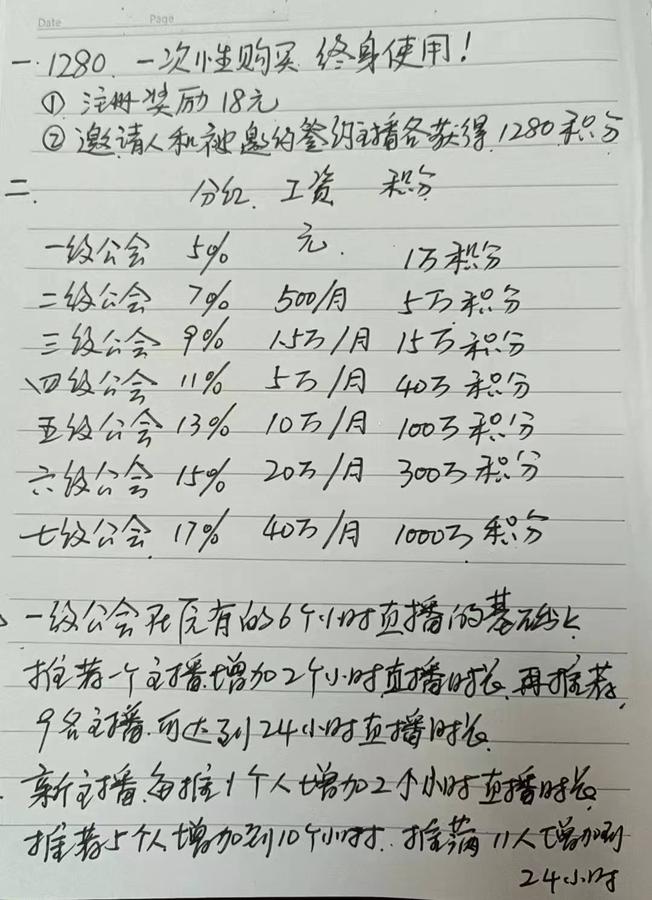 Date Page
一. 1280. 一次性购买 终身使用!
① 注册奖励 18元
② 邀请人和被邀约签约主播各获得 1280积分
二. 分红. 工资 积分
一级公会 5% 元. 1万积分
二级公会 7% 500/月 5万积分
三级公会 9% 1.5万/月 15万积分
四级公会 11% 5万/月 40万积分
五级公会 13% 10万/月 100万积分
六级公会 15% 20万/月 300万积分
七级公会 17% 40万/月 1000万积分
一级公会在原有的6个小时直播的基础上
推荐一个主播增加2个小时直播时长.再推荐
9名主播.可达到24小时直播时长
新主播.每推1个人增加2个小时直播时长
推荐5个人增加到10个小时. 推荐满11人增加到
24小时